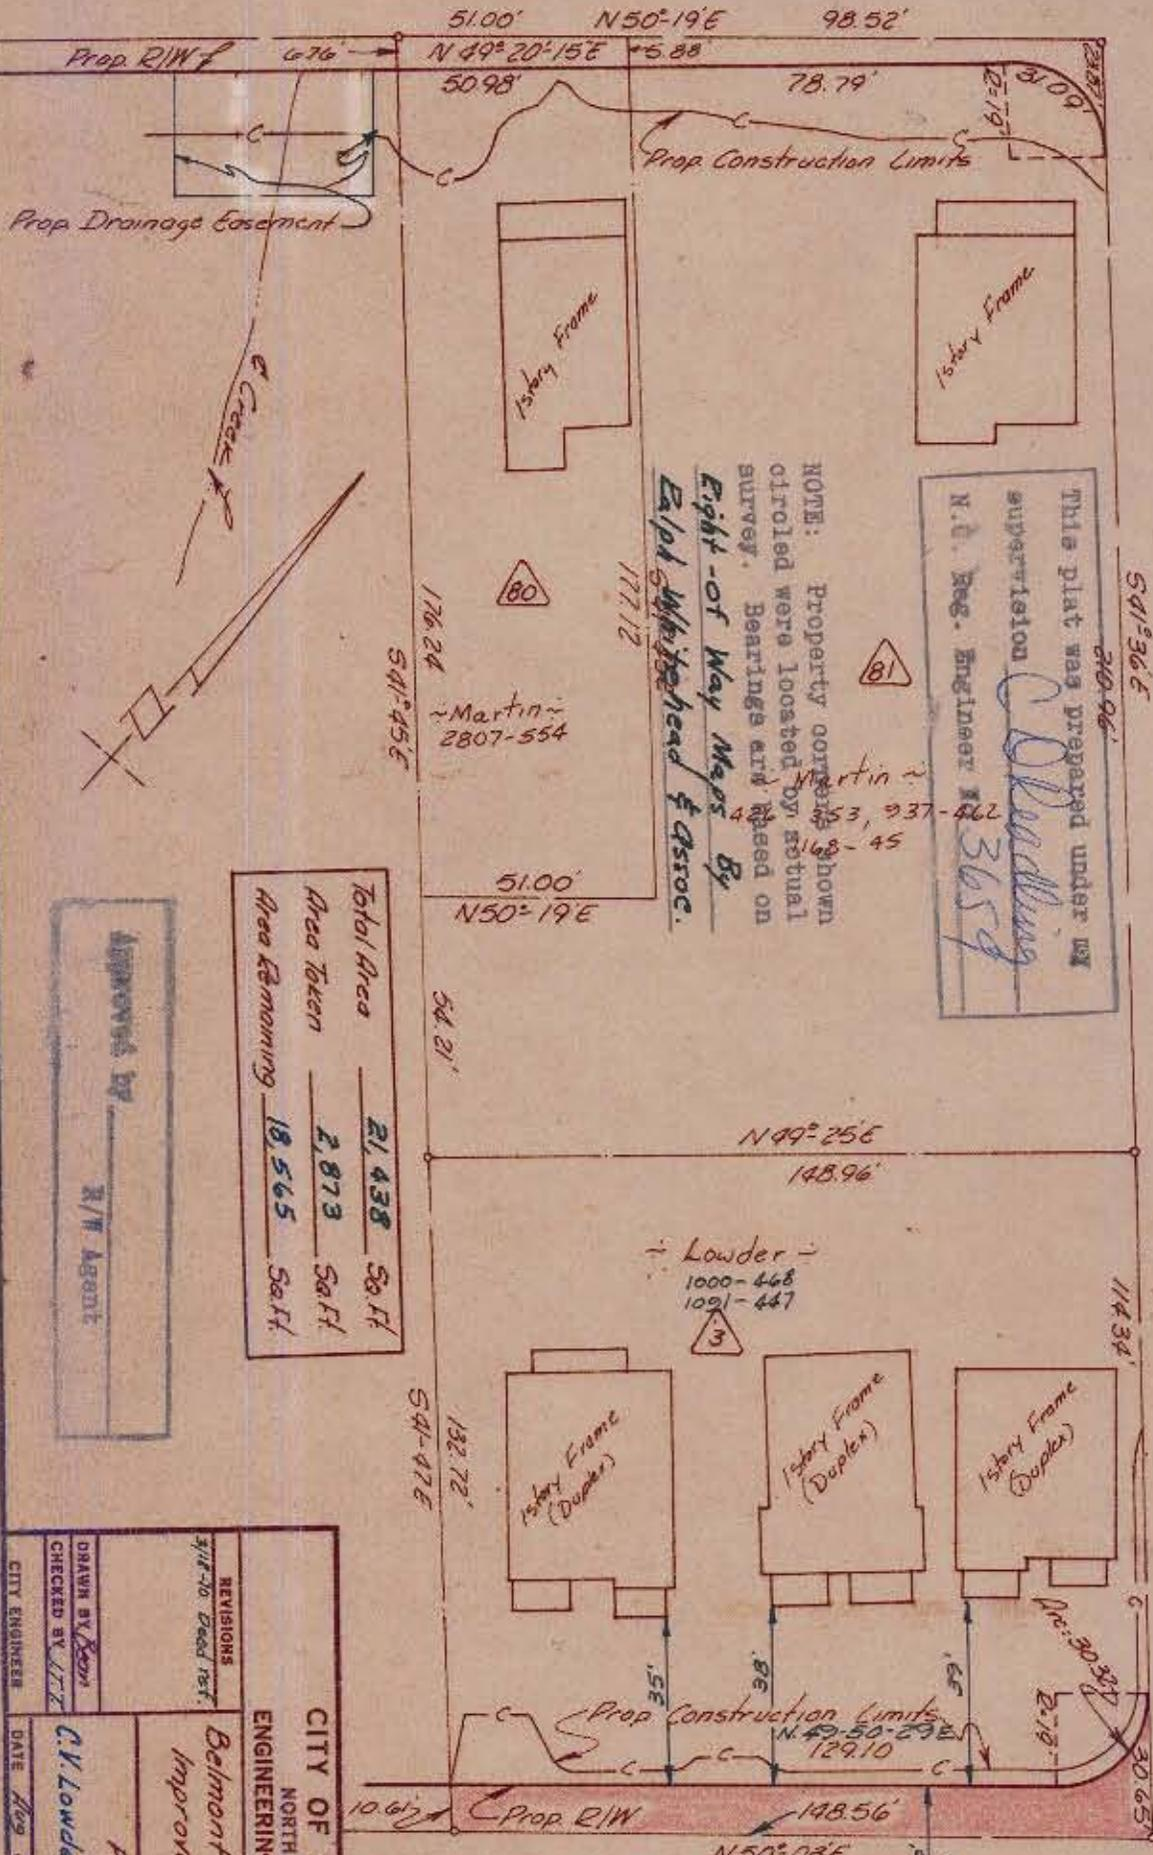 51.00' N50°-19'E 98.52'
Prop. R/W 6.76' N 49°-20'-15"E 5.88'
50.98' 78.79'
R=19'
C
C
C
C
Prop. Construction Limits
Prop. Drainage Easement
1 story Frame
1 story Frame
₵ Creek
S41°36'E
210.96'
This plat was prepared under my
supervision
N.C. Reg. Engineer # 3659
NOTE: Property corners shown
circled were located by actual
survey. Bearings are based on
Right-of Way Maps By
Ralph Whitehead & Assoc.
80
81
176.24
S41°-45'E
177.12
~Martin~
2807-554
~Martin~
353, 937-462
168-45
51.00'
N50°-19'E
54.21'
Total Area 21,438 Sq.Ft.
Area Taken 2,873 Sq.Ft.
Area Remaining 18,565 Sq.Ft.
Approved by
R/W Agent
N49°-25'E
148.96'
~ Lowder ~
1000-468
1091-447
3
114.34'
1 story Frame
(Duplex)
1 story Frame
(Duplex)
1 story Frame
(Duplex)
132.72'
S41-47E
35'
38'
39'
R=19'
C
C
C
C
C
Prop Construction Limits
N.49-50-29E
129.10
10.61'
Prop. R/W
148.56'
30.65'
N50°-03'E
CITY OF
NORTH
ENGINEERIN
REVISIONS
3/18-70 Deed ref.
DRAWN BY
CHECKED BY J.T.T.
CITY ENGINEER
DATE Aug
Belmont
Improv
C.V. Lowde